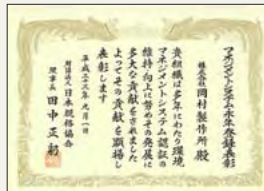 マネジメントシステム永年登録表彰
株式会社 岡村製作所 殿
貴組織は多年にわたり環境
マネジメントシステム認証の
維持・向上に努めその発展に
多大な貢献をされました
よってその貢献を顕揚し
表彰します
平成二十六年九月一日
財団法人 日本規格協会
理事長 田中正躬